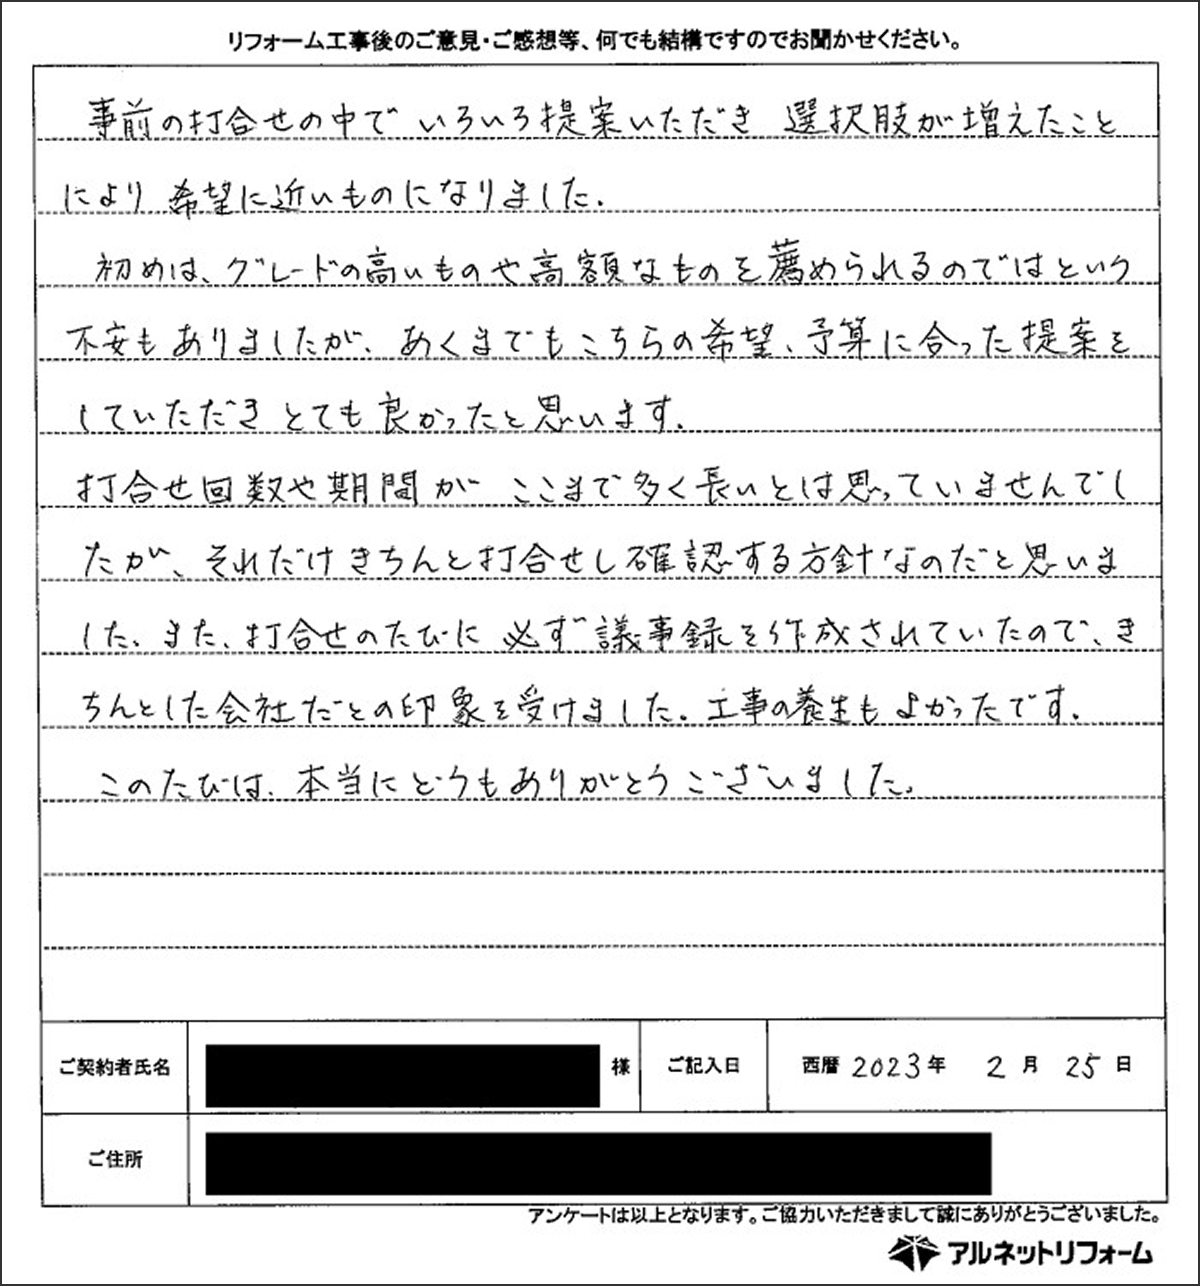 リフォーム工事後のご意見・ご感想等、何でも結構ですのでお聞かせください。
事前の打合せの中で いろいろ提案いただき 選択肢が増えたこと
により 希望に近いものになりました.
初めは、グレードの高いものや高額なものを薦められるのではという
不安もありましたが、あくまでもこちらの希望、予算に合った提案を
していただき とても良かったと思います.
打合せ回数や期間が ここまで多く長いとは思っていませんでし
たが、それだけきちんと打合せし確認する方針なのだと思いま
した、また、打合せのたびに 必ず議事録を作成されていたので、き
ちんとした会社だとの印象を受けました. 工事の養生もよかったです.
このたびは、本当にどうもありがとうございました。
ご契約者氏名 様 ご記入日 西暦 2023年 2月 25日
ご住所
アンケートは以上となります。ご協力いただきまして誠にありがとうございました。
アルネットリフォーム